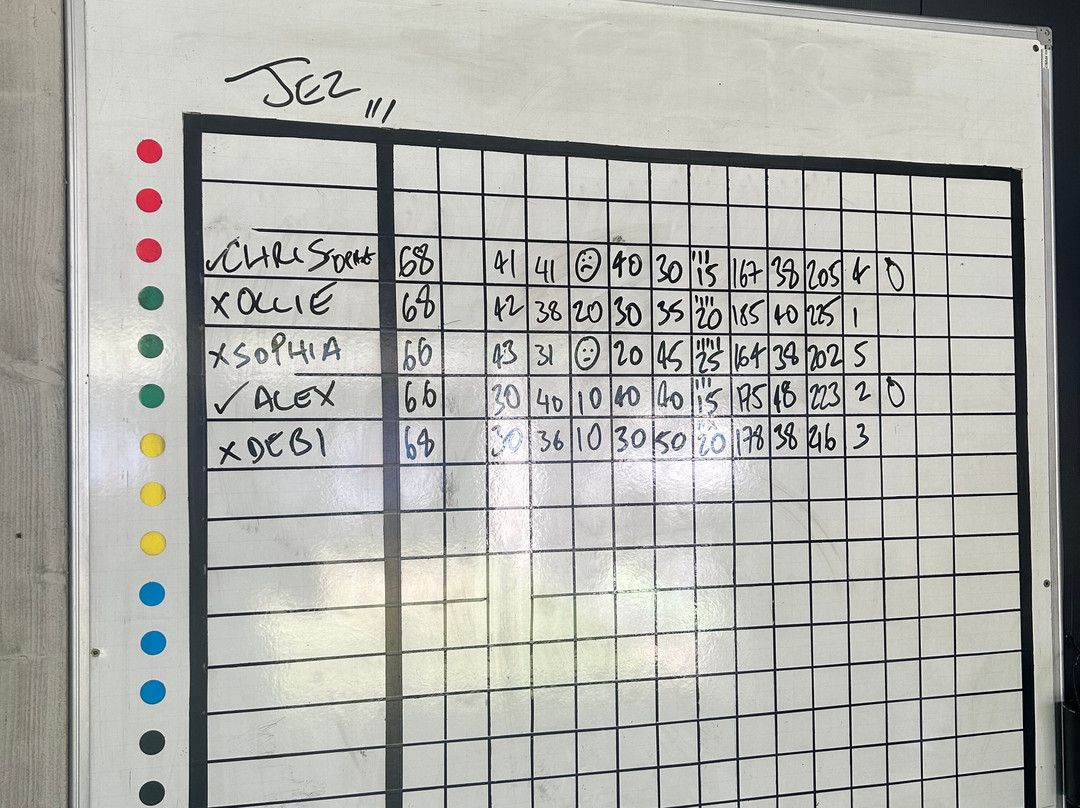 JEZ
✓CHRISTOPHE 68 41 41 ☹ 40 30 15 167 38 205 4 0
XOLLIE 68 42 38 20 30 35 20 185 40 225 1
XSOPHIA 66 43 31 ☹ 20 45 25 164 38 202 5
✓ ALEX 66 30 40 10 40 40 15 175 48 223 2 0
XDEBI 68 30 36 10 30 50 20 178 38 216 3